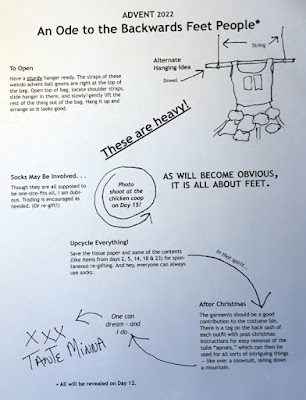 ADVENT 2022
An Ode to the Backwards Feet People*
To Open
Have a sturdy hanger ready. The straps of these
weirdo advent ball gowns are right at the top of
the bag. Open top of bag, locate shoulder straps,
slide hanger in there, and slowly/gently lift the
rest of the thing out of the bag. Hang it up and
arrange so it looks good.
Alternate
Hanging Idea
String
Dowel
These are heavy!
Socks May Be Involved. . .
Though they are all supposed to
be one-size-fits-all, I am dubi-
ous. Trading is encouraged as
needed. (Or re-gift!)
Photo
shoot at the
chicken coop
on Day 15!
AS WILL BECOME OBVIOUS,
IT IS ALL ABOUT FEET.
Upcycle Everything!
Save the tissue paper and some of the contents
(like items from days 2, 5, 14, 18 & 23) for spon-
taneous re-gifting. And hey, everyone can always
use socks.
In that spirit...
One can
dream - and
I do.
XXX
TANTE MINNA
After Christmas
The garments should be a good
contribution to the costume bin.
There is a tag on the back sash of
each outfit with post-Christmas
instructions for easy removal of the
tulle "aprons," which can then be
used for all sorts of intriguing things
— like over a snowsuit, skiing down
a mountain.
* All will be revealed on Day 12.